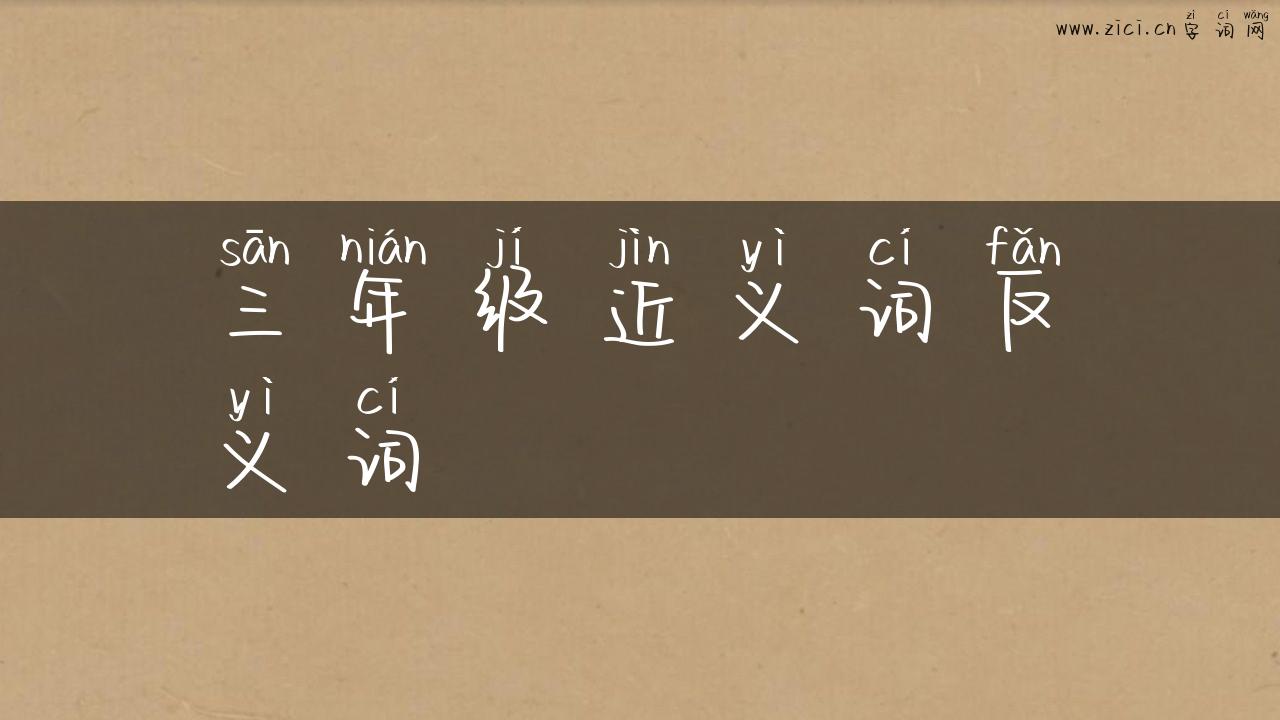 zì cí wǎng
www.zici.cn 字 词 网
sān nián jí jìn yì cí fǎn
三 年 级 近 义 词 反
yì cí
义 词